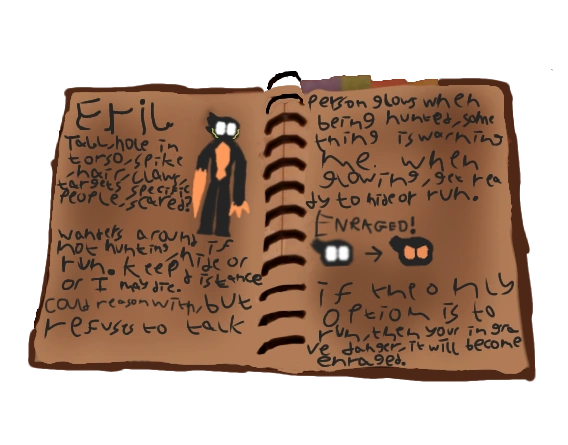 Eril
Tall, hole in
torso, spike
hair, claws,
targets specific
people, scared?
wanters around if
not hunting, hide or
run. keep distance
or I may die.
could reason with, but
refuses to talk
Person glows when
being hunted, some
thing is warning
me. when
glowing, get rea
dy to hide or run.
ENRAGED!
if the only
option is to
run, then your in gra
ve danger, it will become
enraged.